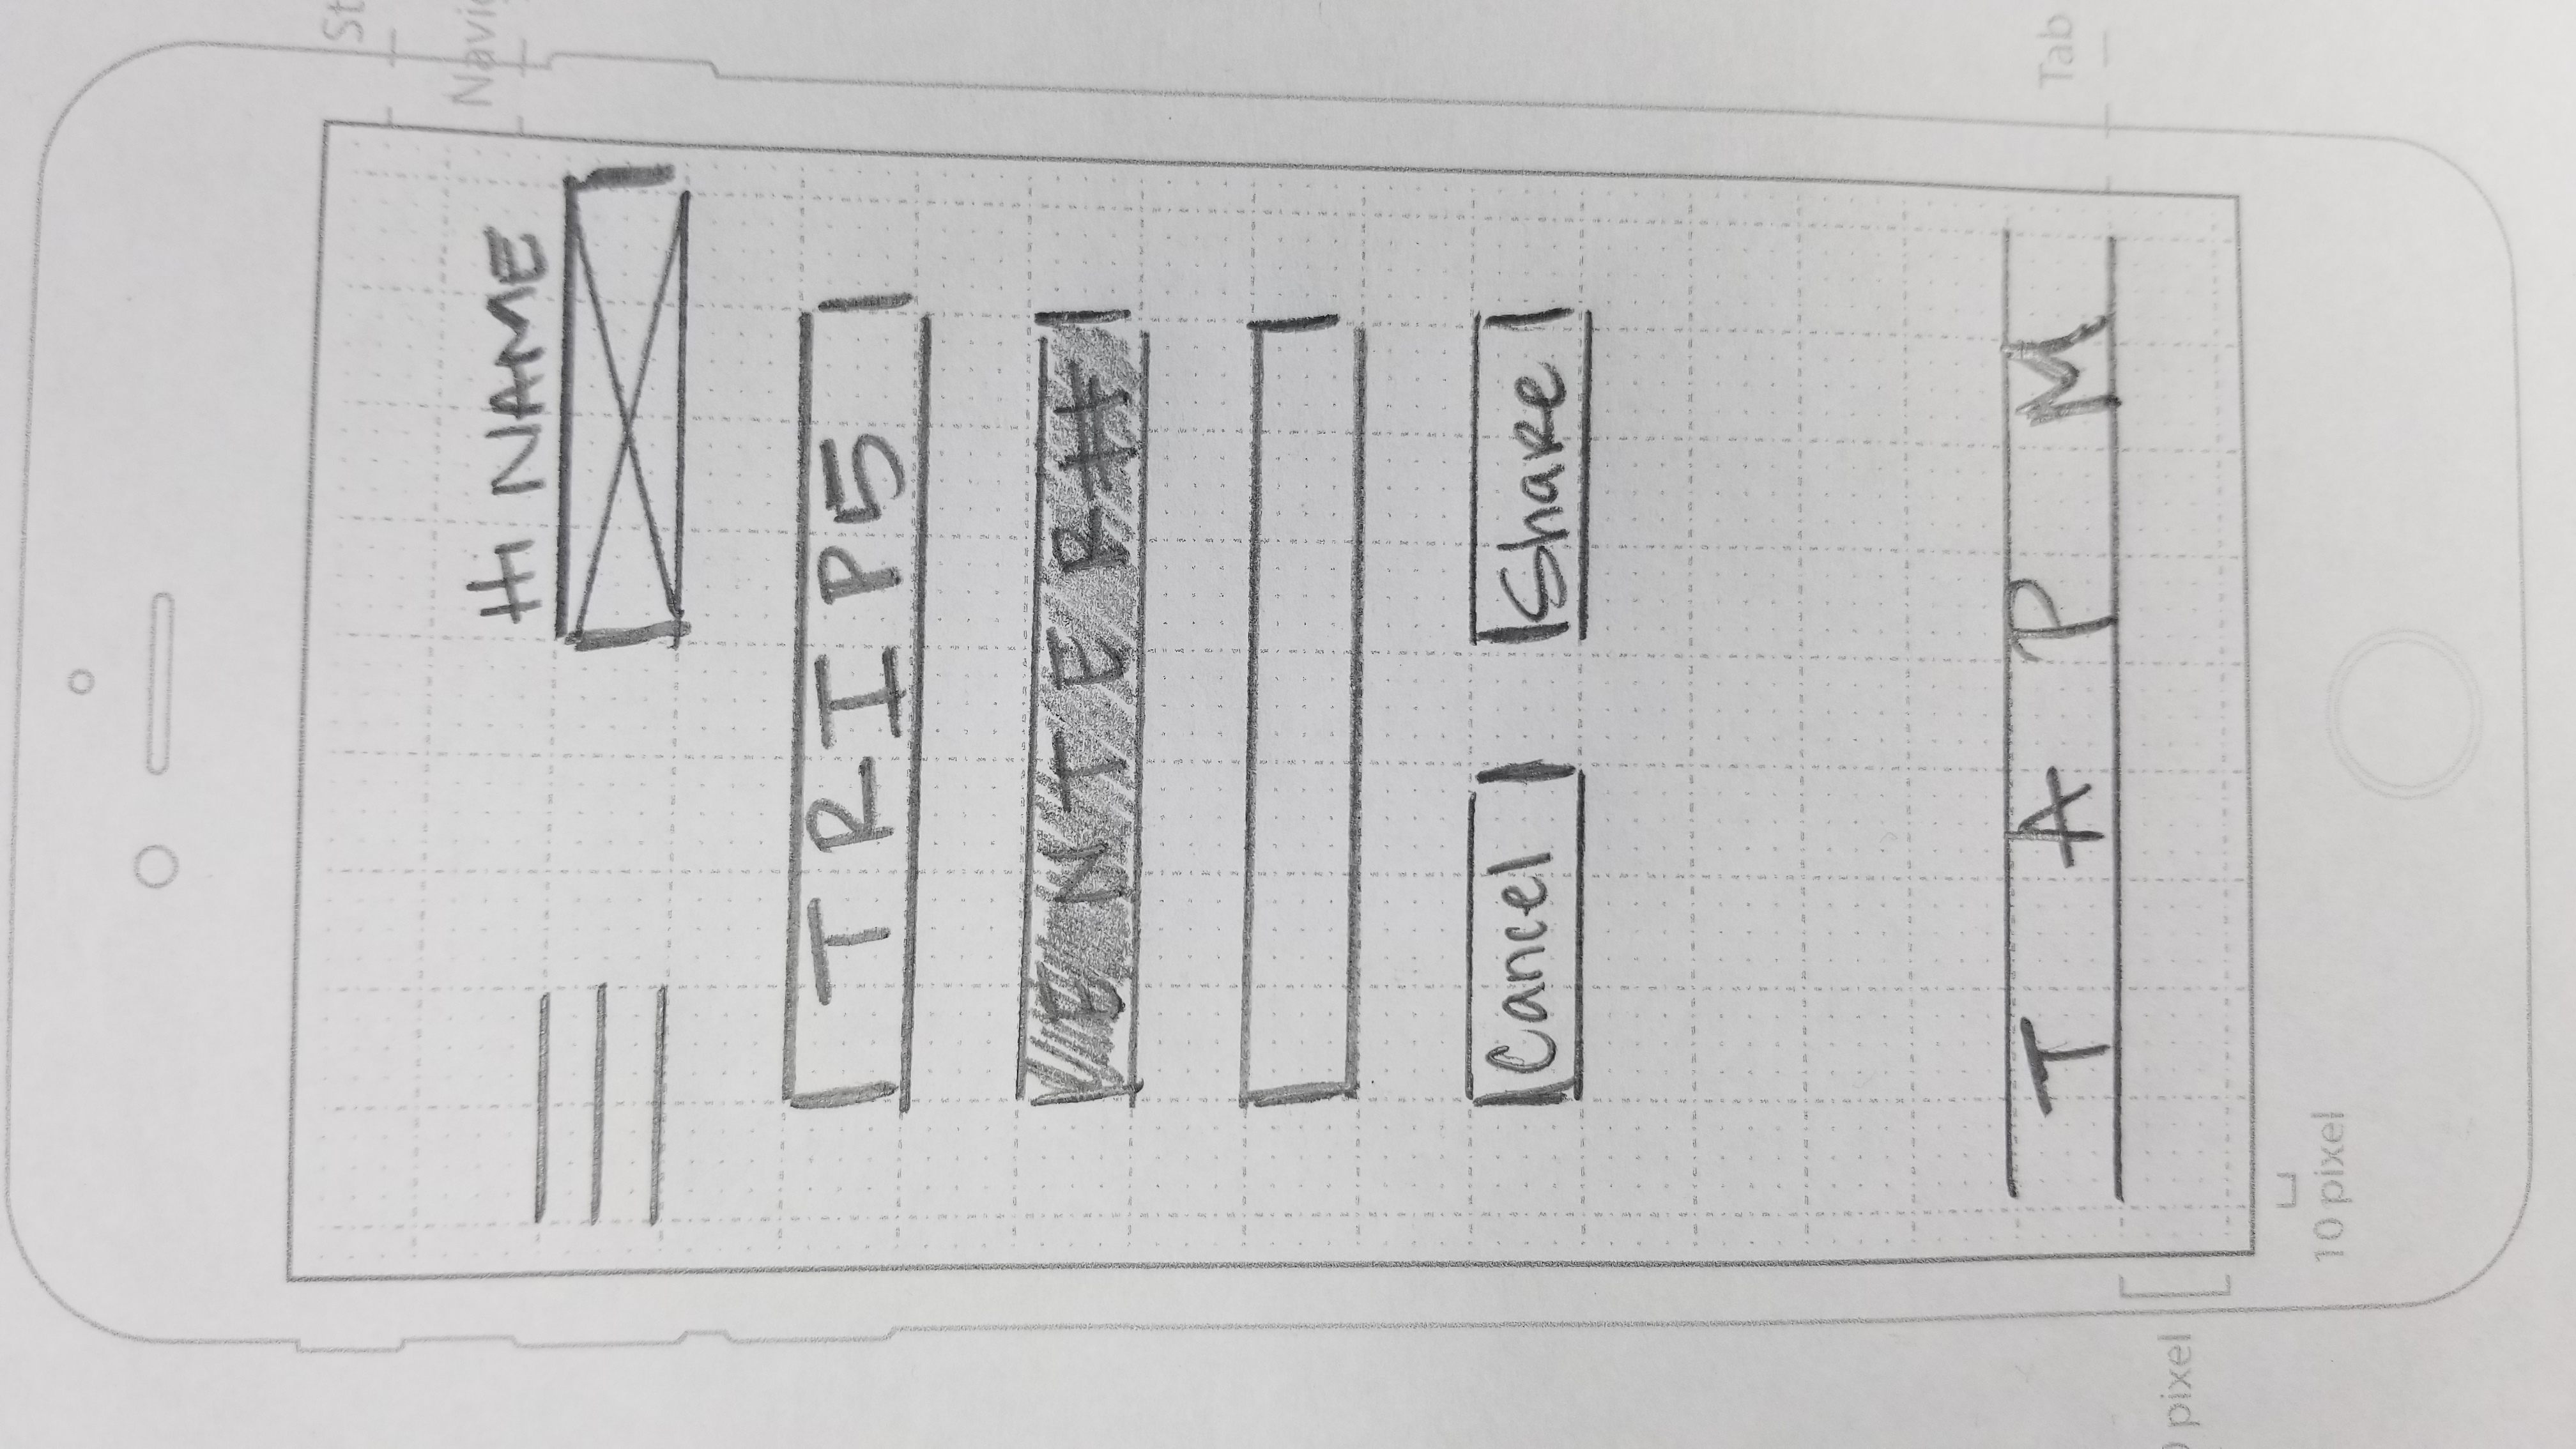 St
Navi
Hi NAME
TRIPS
ENTER#
Cancel Share
T A P M
Tab
pixel
10 pixel